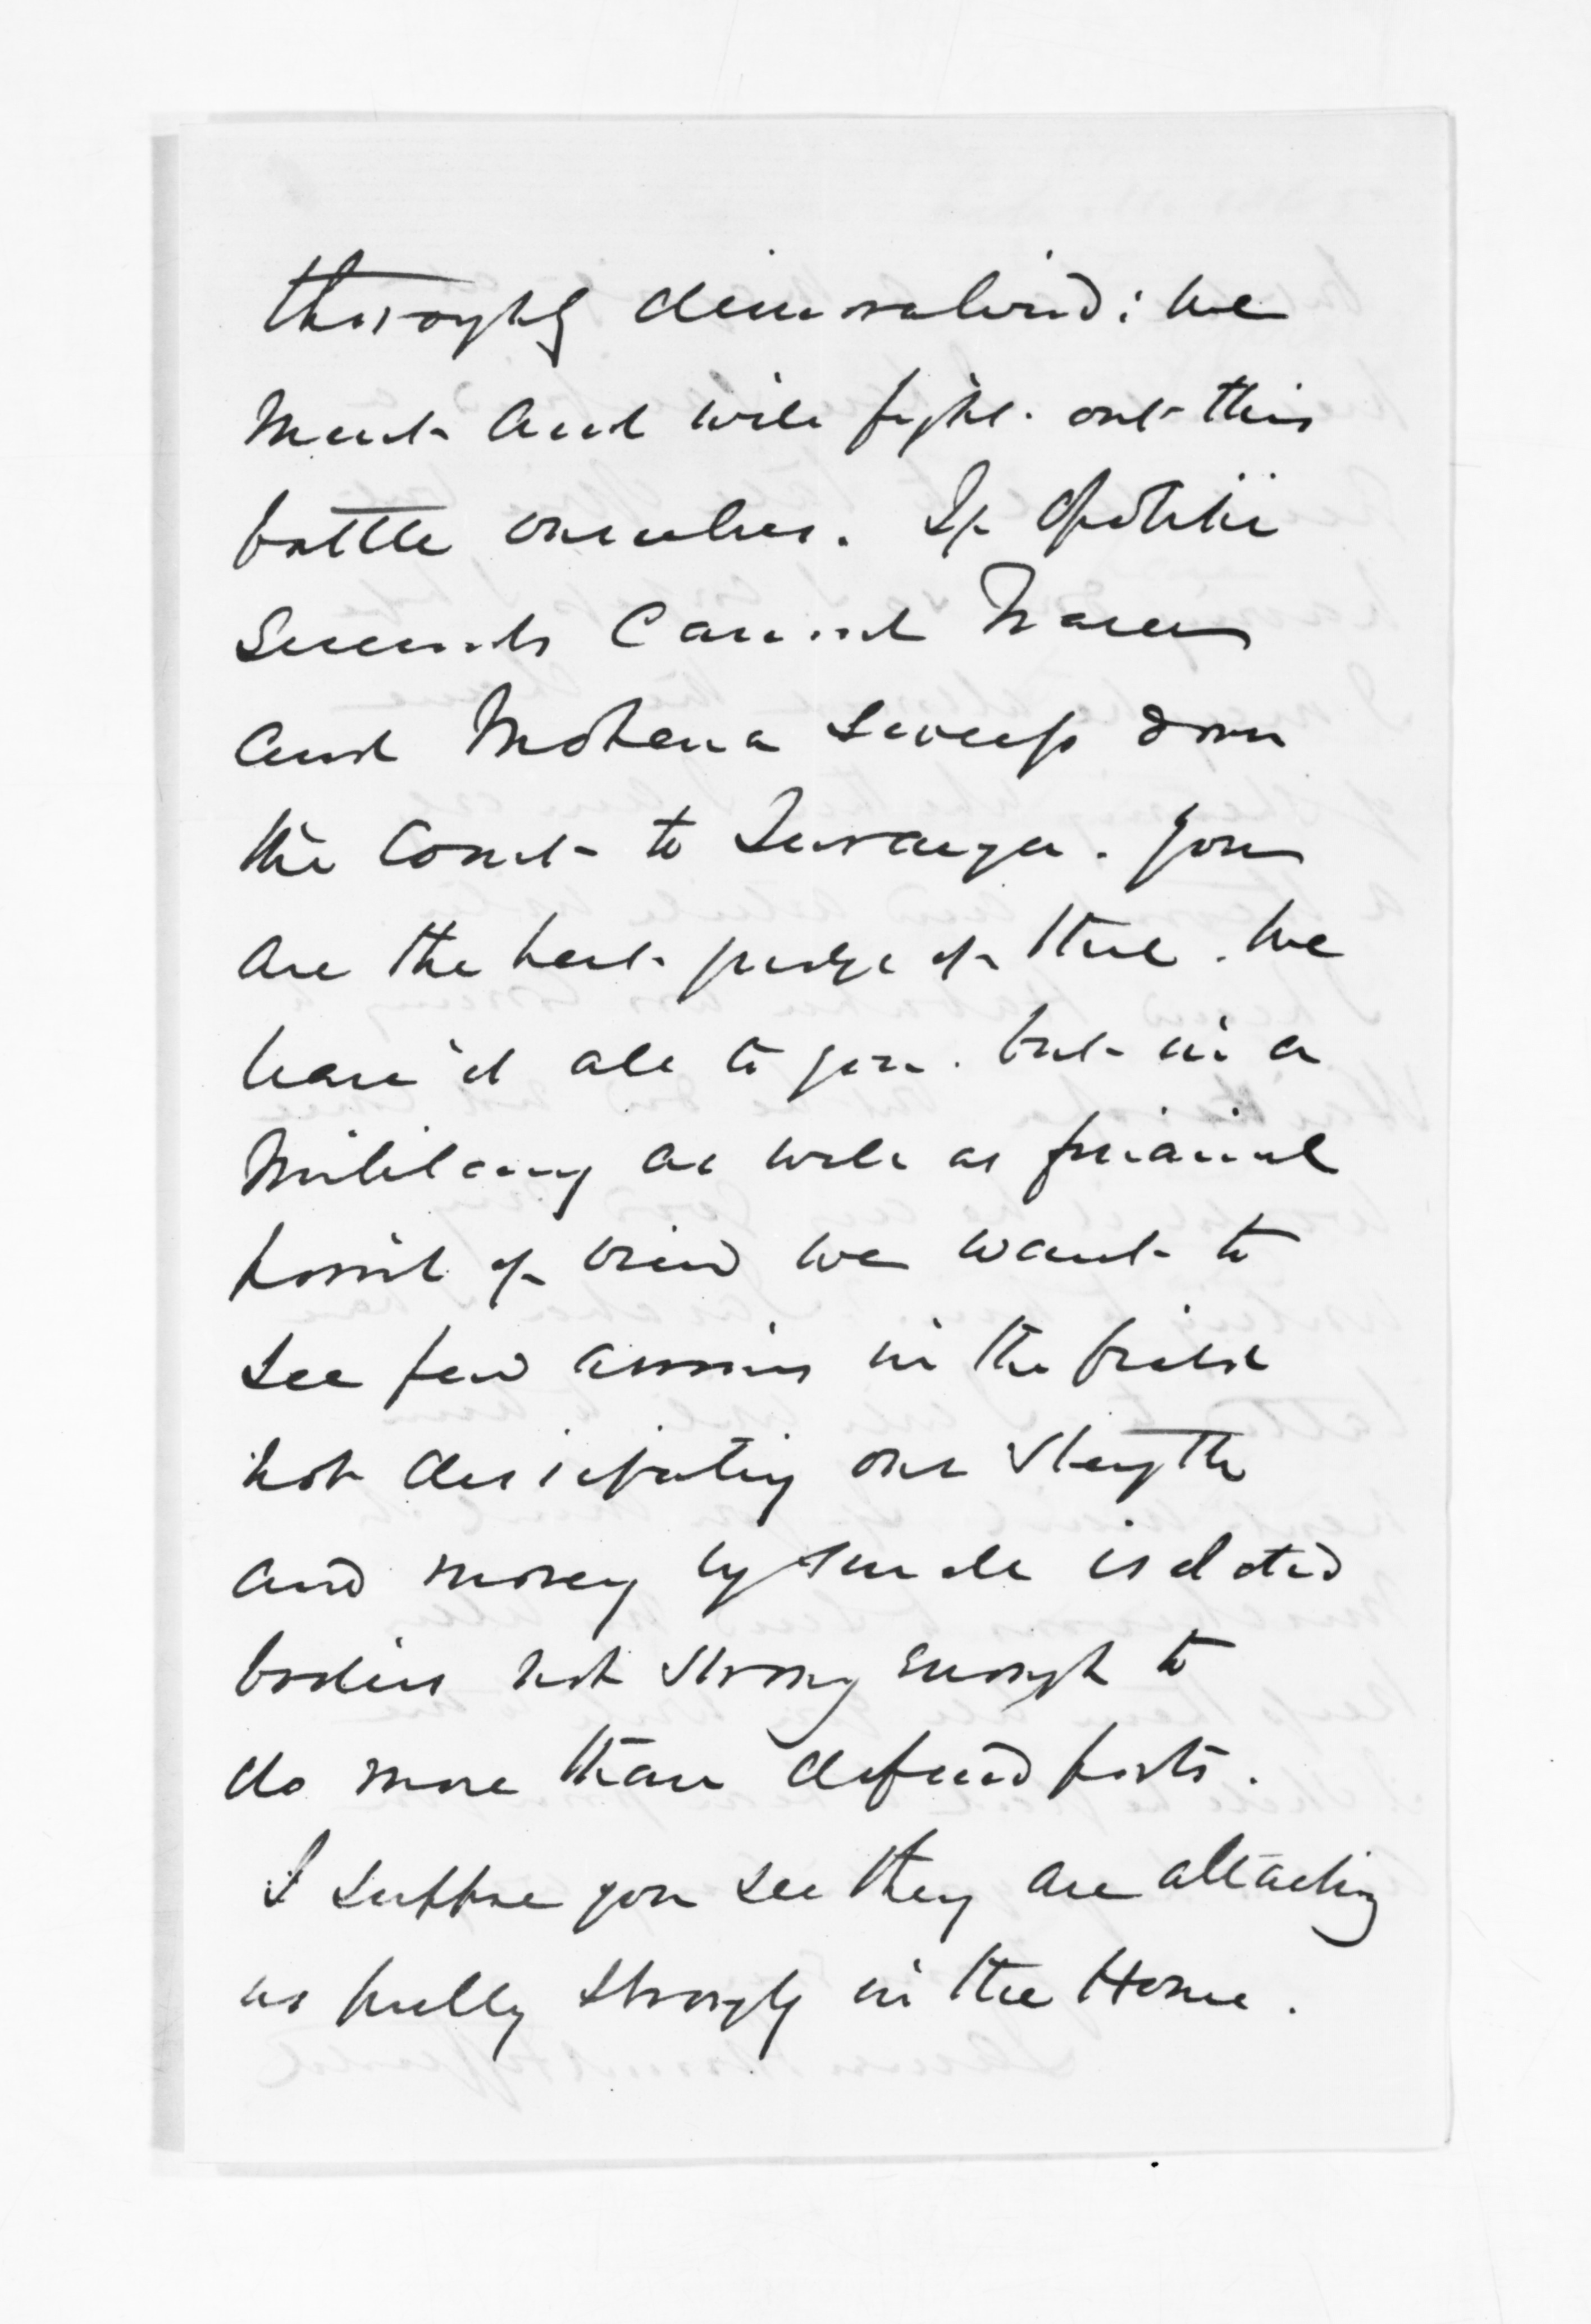 thoroughly demoralized: we
must and will fight out this
battle ourselves. If Opotiki
succeeds cannot Fraser
and Mokena sweep down
the Coast to Turanga. You
are the best judge of this. We
leave it all to you. but in a
Military as well as financial
point of view we want to
see few armies in the field
not dissipating our strength
and money by small isolated
bodies not strong enough to
do more than defend posts.
I suppose you see they are attacking
us pretty strongly in the Home.